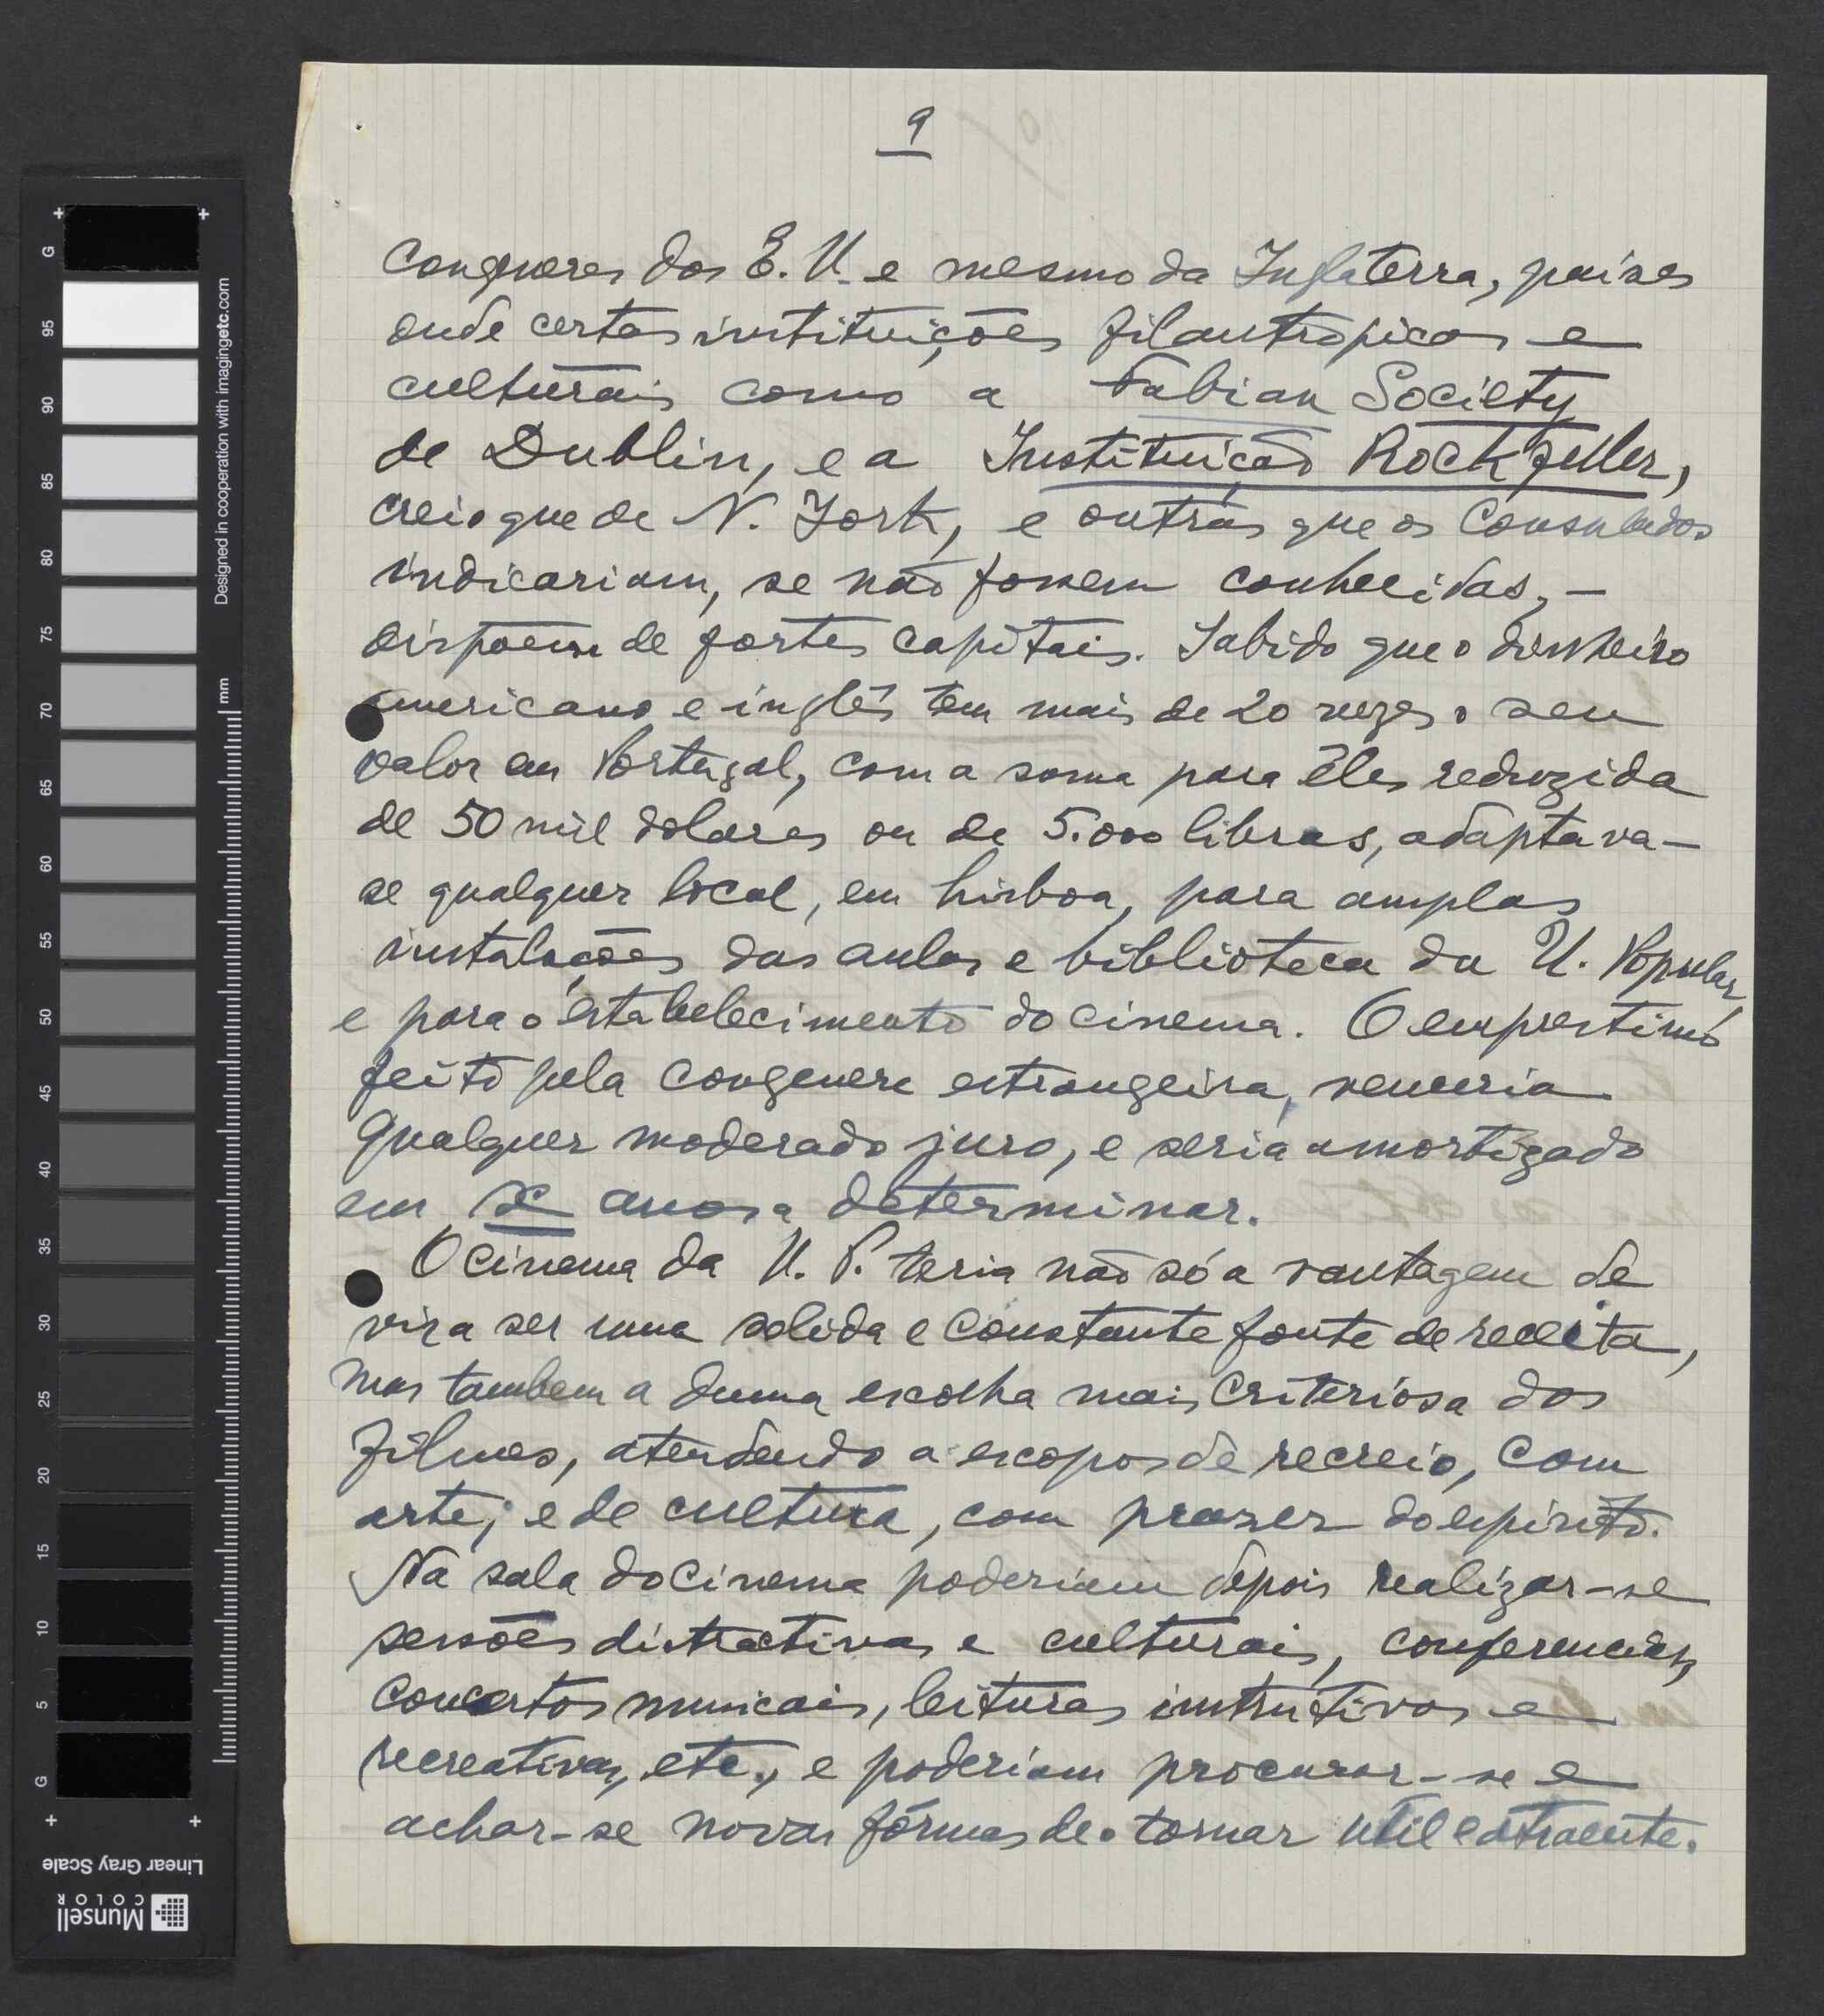 9
congeneres dos E. U. e mesmo da Inglaterra, paises
onde certas instituições filantropicas e
culturais como a Fabian Society
de Dublin, e a Instituição Rockfeller,
creio que de N. York, e outras que os Consulados
indicariam, se não fossem conhecidas, —
dispoem de fortes capitais. Sabido que o dinheiro
americano e inglês tem mais de 20 vezes o seu
valor em Portugal, com a soma para êles reduzida
de 50 mil dolares ou de 5.000 libras, adaptava-
se qualquer local, em Lisboa, para amplas
instalações das aulas e biblioteca da U. Popular
e para o estabelecimento do cinema. O emprestimo
feito pela congenere estrangeira, venceria
qualquer moderado juro, e seria amortizado
em x anos a determinar.
O cinema da U. P. teria não só a vantagem de
vir a ser uma solida e constante fonte de receita,
mas tambem a duma escolha mais criteriosa dos
filmes, atendendo a escopos de recreio, com
arte; e de cultura, com prazer do espirito.
Na sala do cinema poderiam depois realizar-se
sessões distractivas e culturais, conferencias,
concertos musicais, leituras instrutivas e
recreativas, etc., e poderiam procurar-se e
achar-se novas fórmas de o tornar util e atraente.
Designed in cooperation with imagingetc.com
mm
G
95
90
85
80
75
70
65
60
55
50
45
40
35
30
25
20
15
10
5
G
Linear Gray Scale
Munsell
COLOR